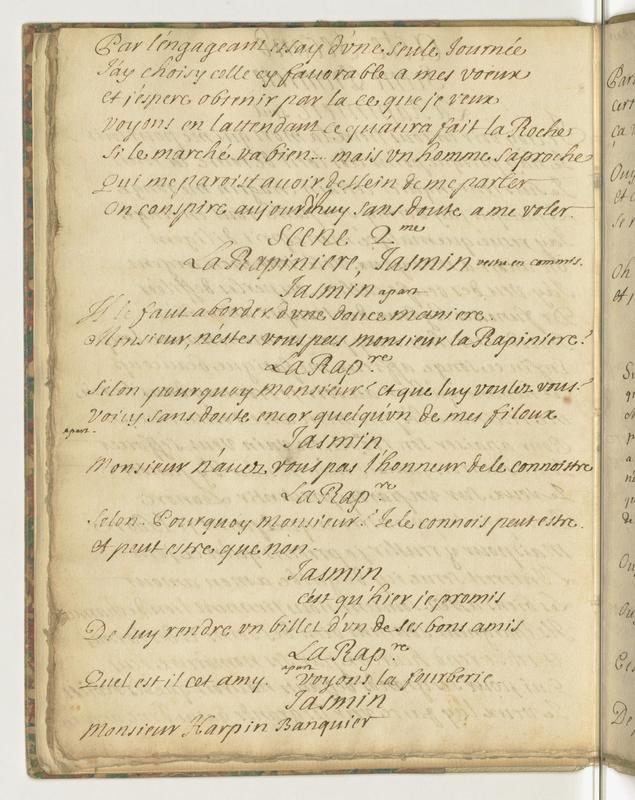 Par l'engageant essay d'vne seule Journée
J'ay choisy celle cy fauorable a mes voeux
et j'espere obtenir par la ce que je veux
voyons en l'attendant ce qu'aura fait la Roche
si le marché va bien... mais vn homme s'aproche
Qui me paroist auoir dessein de me parler
on conspire aujourdhuy sans doute a me voler.
Scene 2.me
La Rapiniere, Jasmin vestu en commis.
Jasmin apart
Il le faut aborder d'vne douce maniere.
Monsieur, n'estes vous pas monsieur la Rapiniere?
La Rap.re
Selon. pourquoy monsieur? et que luy voulez vous?
voicy sans doute encor quelqu'vn de mes filoux
apart.
Jasmin
Monsieur n'auez vous pas l'honneur de le connoistre
La Rap.re
Selon. Pourquoy Monsieur? Je le connois peut estre.
et peut estre que non.
Jasmin
c'est qu'hier je promis
De luy rendre vn billet d'vn de ses bons amis
La Rap.re
Quel est il cet amy. apart voyons la fourberie
Jasmin
Monsieur Harpin Banquier
Par
cert
ça v
Ouy
et c
se r
Oh
et j
S
qu
c
p
a
n
qu
de
Ou
Ou
C'es
De